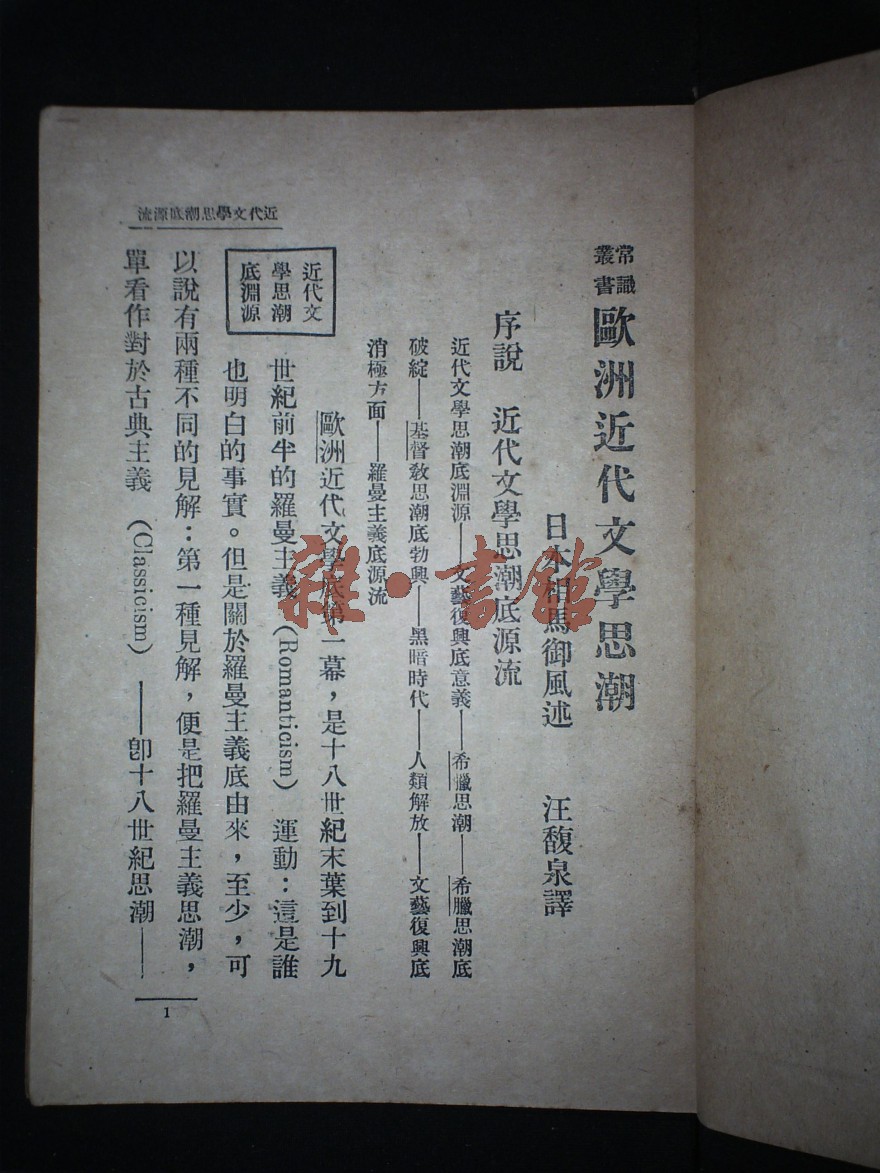 常識
叢書
歐洲近代文學思潮
日本相馬御風述　汪馥泉譯
序說　近代文學思潮底源流
近代文學思潮底淵源——文藝復興底意義——希臘思潮——希臘思潮底
破綻——基督敎思潮底勃興——黑暗時代——人類解放——文藝復興底
消極方面——羅曼主義底源流
歐洲近代文學底第一幕，是十八世紀末葉到十九
世紀前半的羅曼主義（Romanticism）運動：這是誰
也明白的事實。但是關於羅曼主義底由來，至少，可
以說有兩種不同的見解：第一種見解，便是把羅曼主義思潮，
單看作對於古典主義（Classicism）——卽十八世紀思潮——
近代文
學思潮
底淵源
近代文學思潮底源流
1
雜·書館